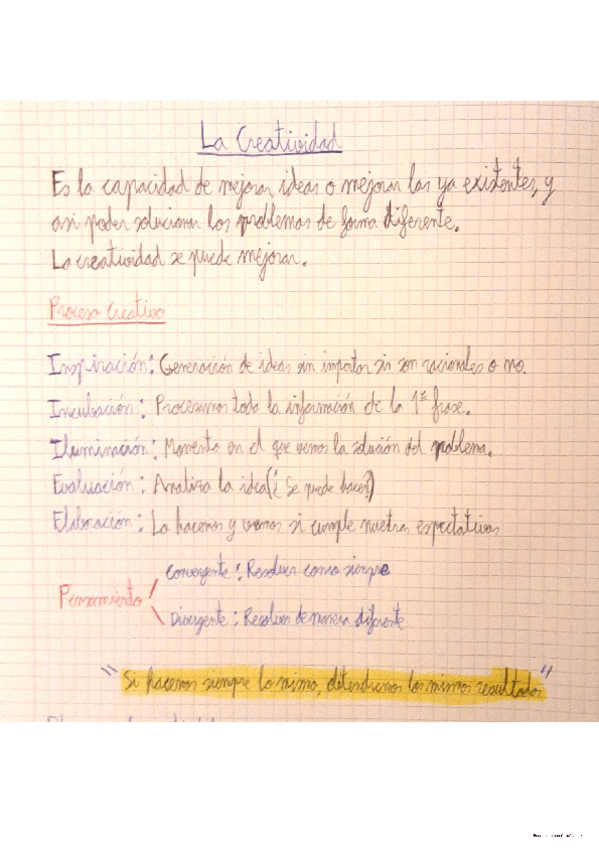 La Creatividad
Es la capacidad de mejorar ideas o mejorar las ya existentes, y
asi poder solucionar los problemas de forma diferente.
La creatividad se puede mejorar.
Proceso Creativo
Inspiración: Generación de ideas sin importar si son racionales o no.
Incubación: Procesamos toda la información de la 1ª frase.
Iluminación: Momento en el que vemos la solución del problema.
Evaluación: Analiza la idea (¿Se puede hacer?)
Elaboración: La hacemos y vemos si cumple nuestras espectativas
Convergente: Resolver como siempre
Pensamiento
Divergente: Resolver de manera diferente
"Si hacemos siempre lo mismo, obtendremos los mismos resultados"